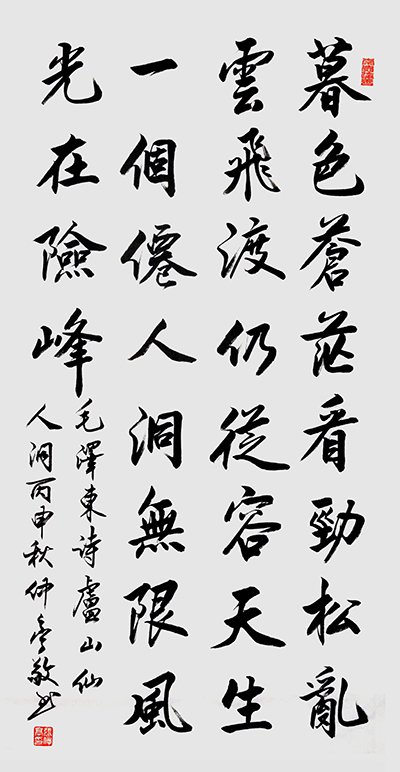 暮色蒼茫看勁松亂
雲飛渡仍從容天生
一個僊人洞無限風
光在險峰
毛澤東詩盧山仙
人洞丙申秋仲敬书